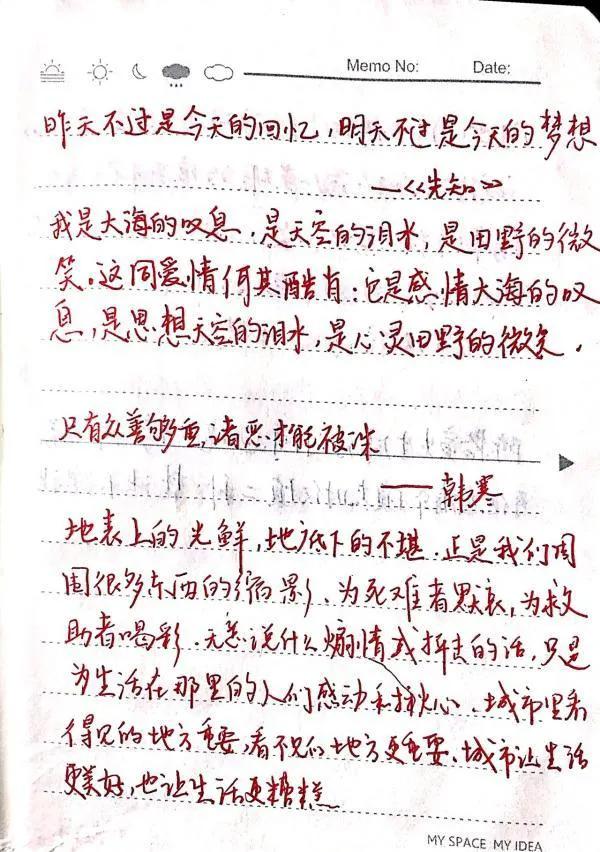 Memo No: Date:
昨天不过是今天的回忆，明天不过是今天的梦想
——《先知》
我是大海的叹息，是天空的泪水，是田野的微
笑。这同爱情何其酷肖：它是感情大海的叹
息，是思想天空的泪水，是心灵田野的微笑．
只有众善够重，诸恶才能被诛
——韩寒
地表上的光鲜，地底下的不堪．正是我们周
围很多东西的缩影、为死难者默哀，为救
助者喝彩．无意说什么煽情或抨击的话，只是
为生活在那里的人们感动和揪心、城市里看
得见的地方重要，看不见的地方更重要、城市让生活
更美好，也让生活更糟糕
MY SPACE MY IDEA